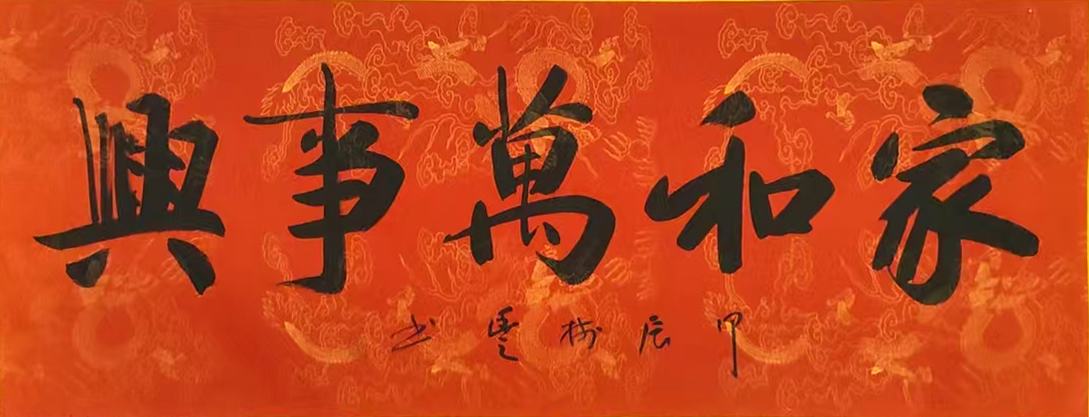 家和萬事興
甲辰樹雲书